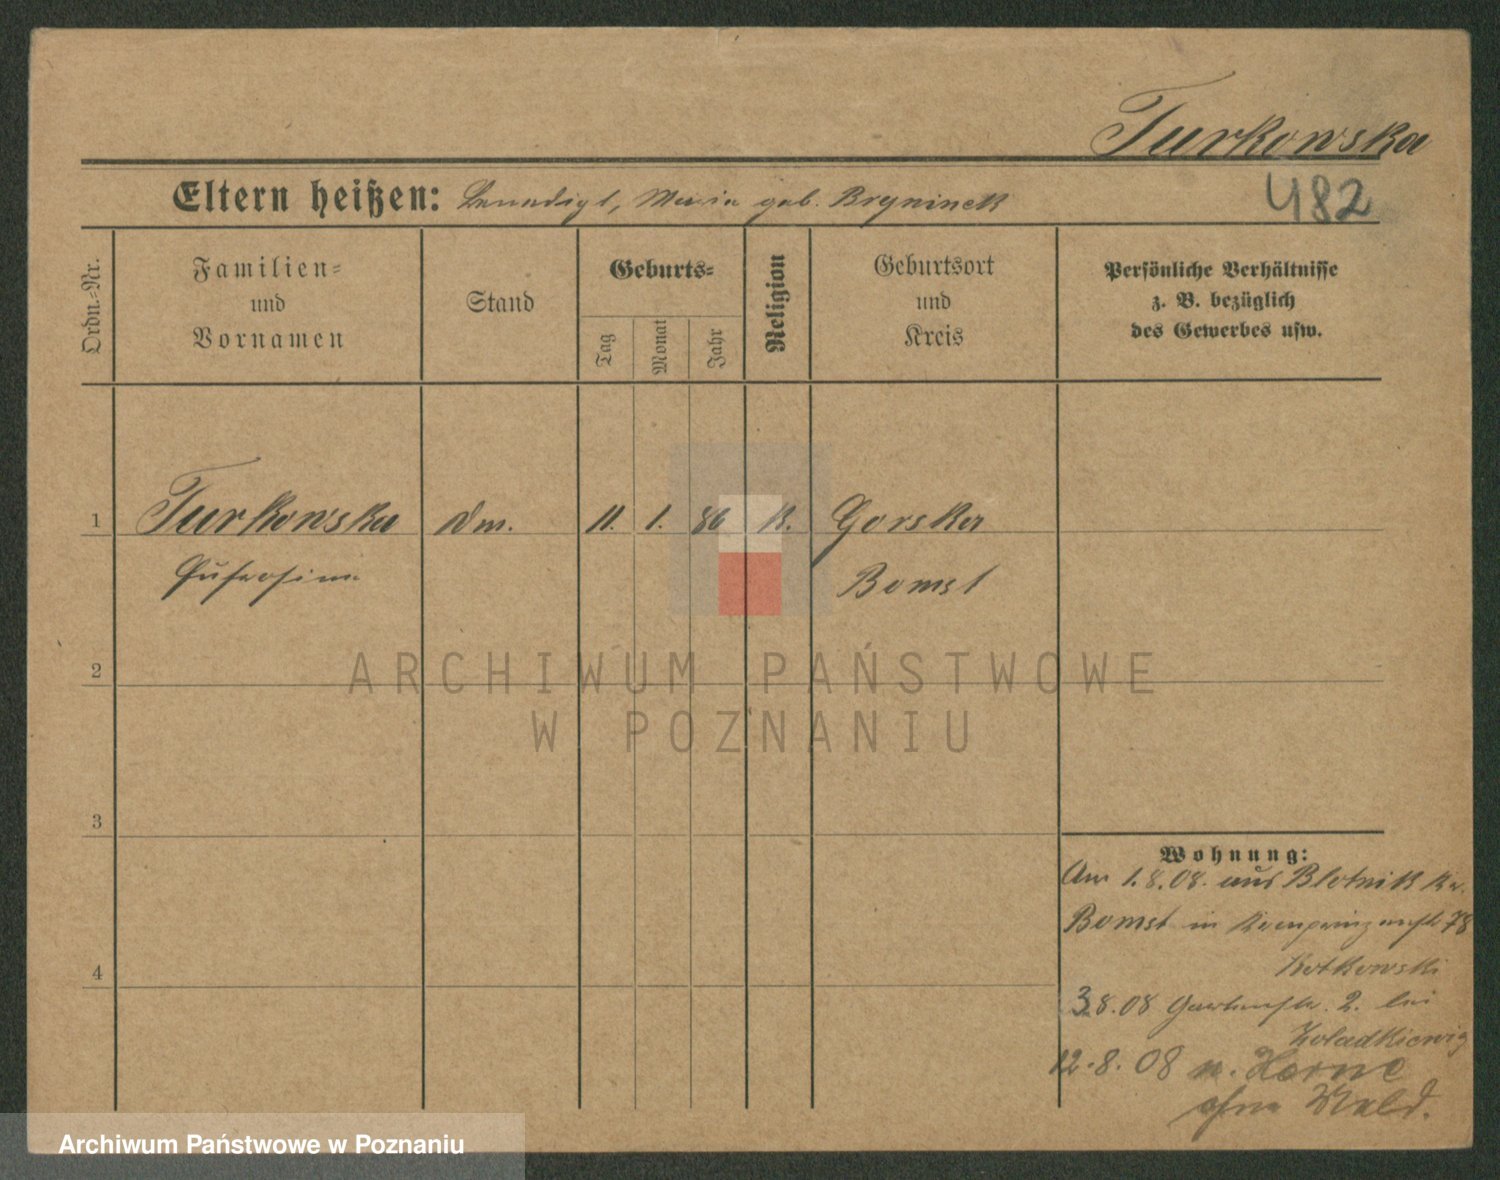 Turkowska
482
Eltern heißen: Benedigt, Maria geb. Bryninek
Ordn.=Nr.
Familien=
und
Vornamen
Stand
Geburts=
Tag
Monat
Jahr
Religion
Geburtsort
und
Kreis
Persönliche Verhältnisse
z. B. bezüglich
des Gewerbes usw.
1 Turkowska Dm. 11. 1. 86 K. Gorsker
Eufrosine Bomst
2
3
4
Wohnung:
Am 1.8.08. aus Blotnik Kr.
Bomst in Kronprinzenstr 78
Kotkowski
3.8.08 Gartenstr. 2. bei
Zoladkiewig
12.8.08 n. Herne
ohne Meld.
ARCHIWUM PAŃSTWOWE
W POZNANIU
Archiwum Państwowe w Poznaniu